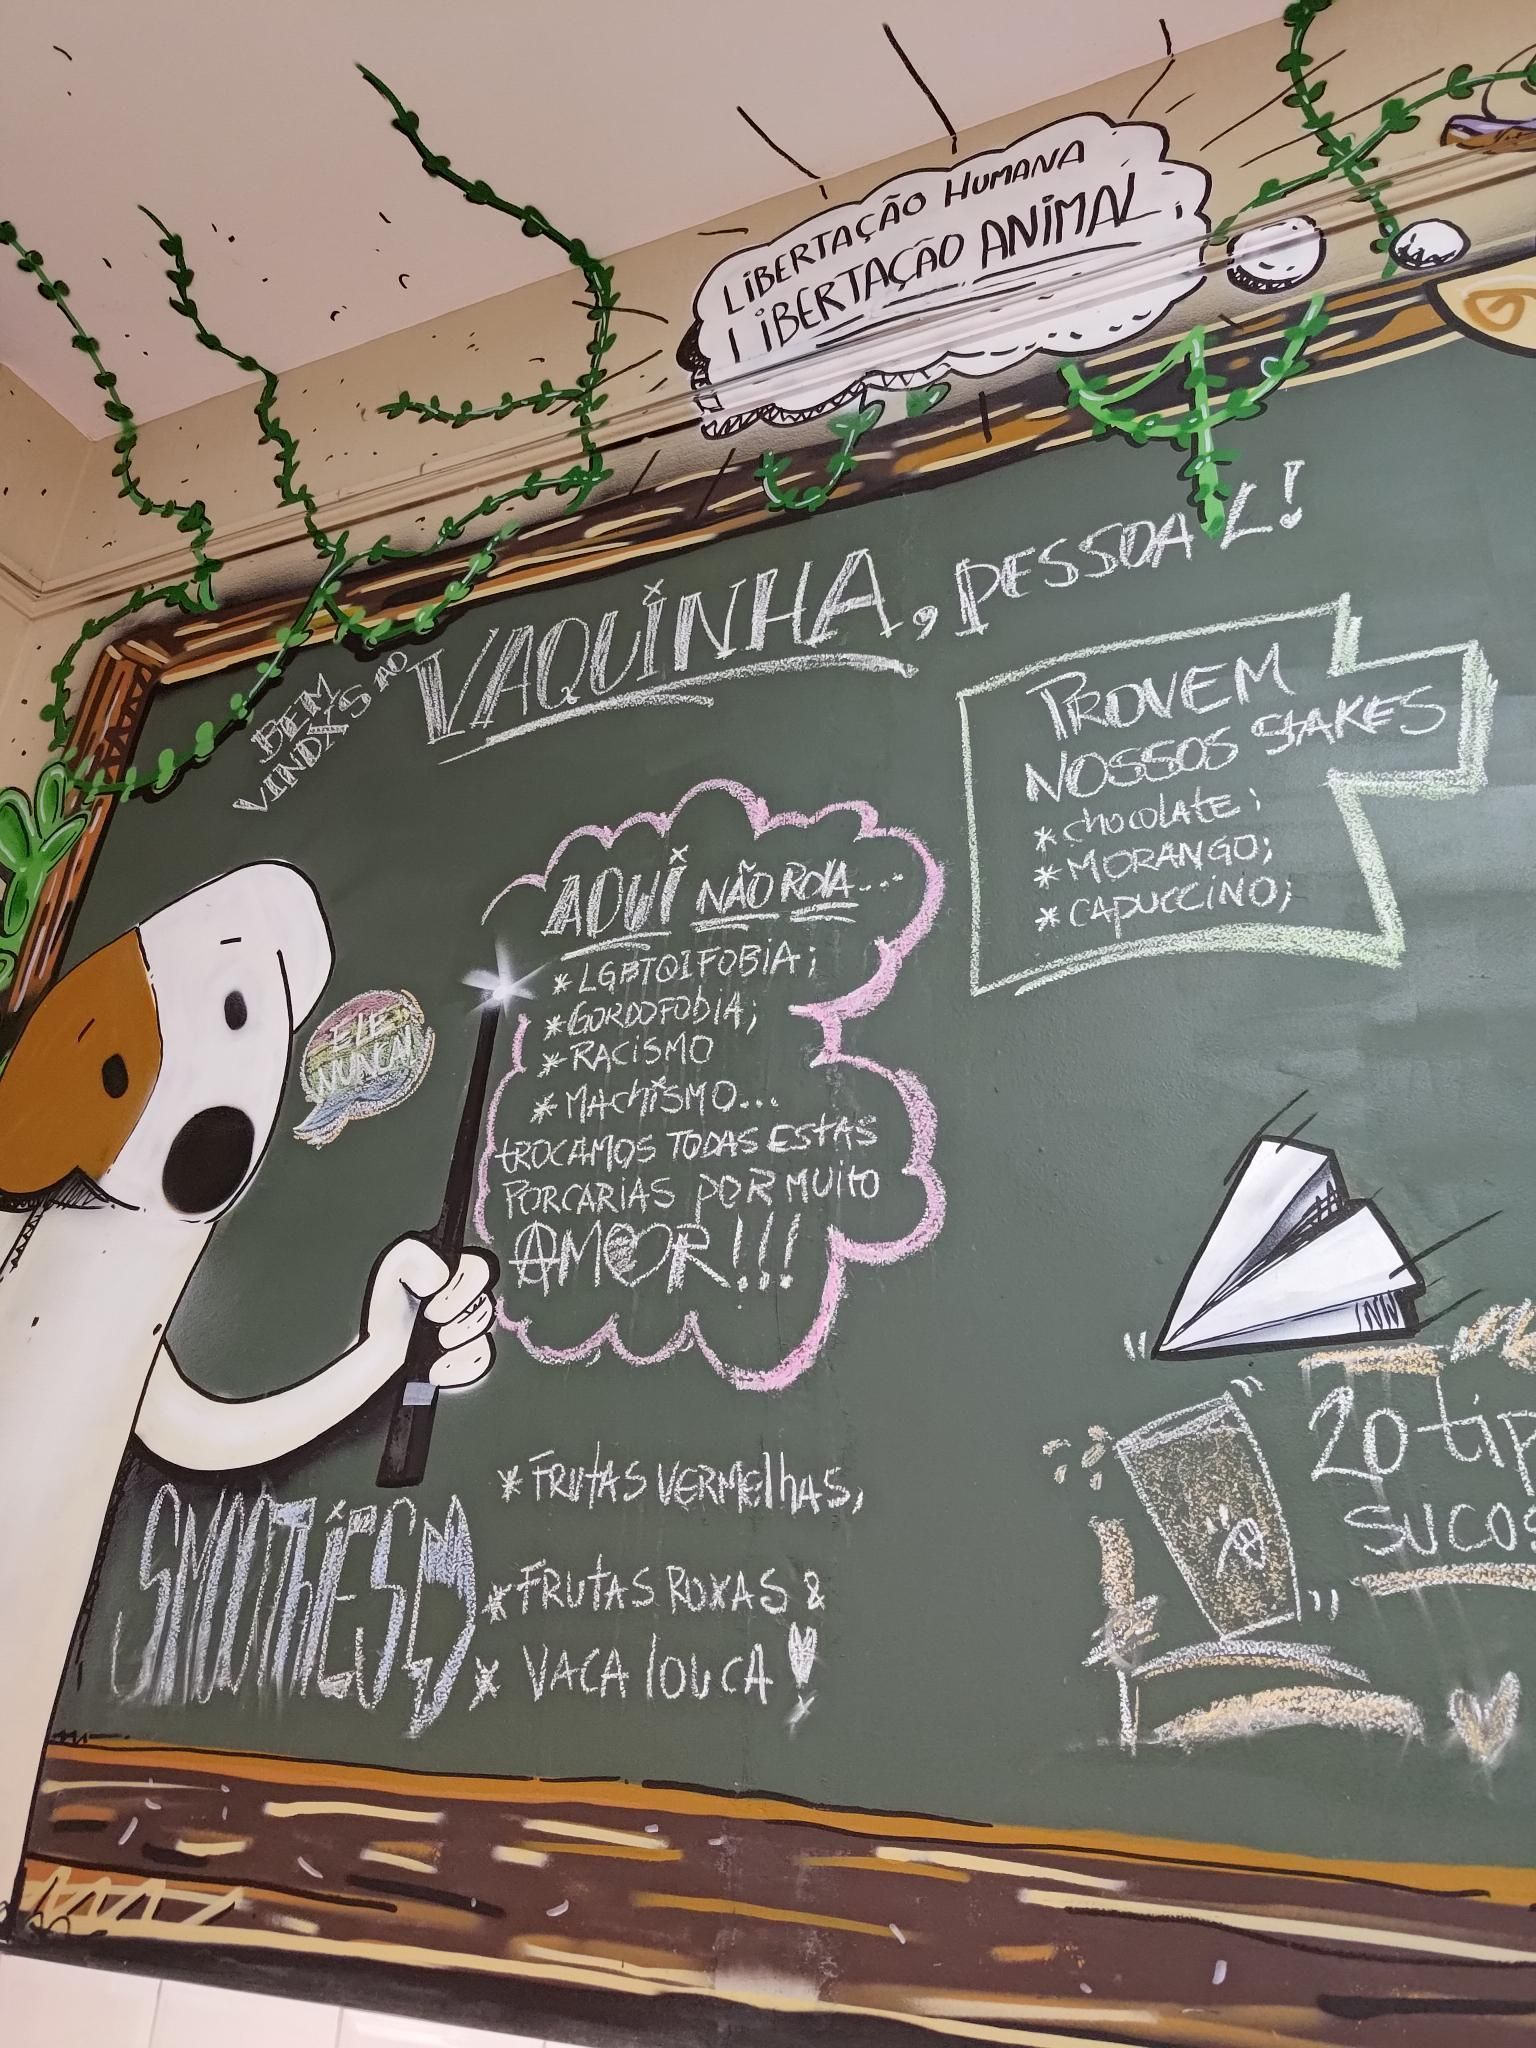 LIBERTAÇÃO HUMANA
LIBERTAÇÃO ANIMAL
BEM
VINDXS AO
VAQUINHA, PESSOAL!
PROVEM
NOSSOS SHAKES
* CHOCOLATE;
* MORANGO;
* CAPUCCINO;
AQUI NÃO ROLA...
* LGBTQIFOBIA;
* GORDOFOBIA;
* RACISMO
* MACHISMO...
TROCAMOS TODAS ESTAS
PORCARIAS POR MUITO
AMOR!!!
ELE
NUNCA!
SMOOTHIES
* FRUTAS VERMELHAS,
* FRUTAS ROXAS &
* VACA LOUCA!
20 tip
SUCOS